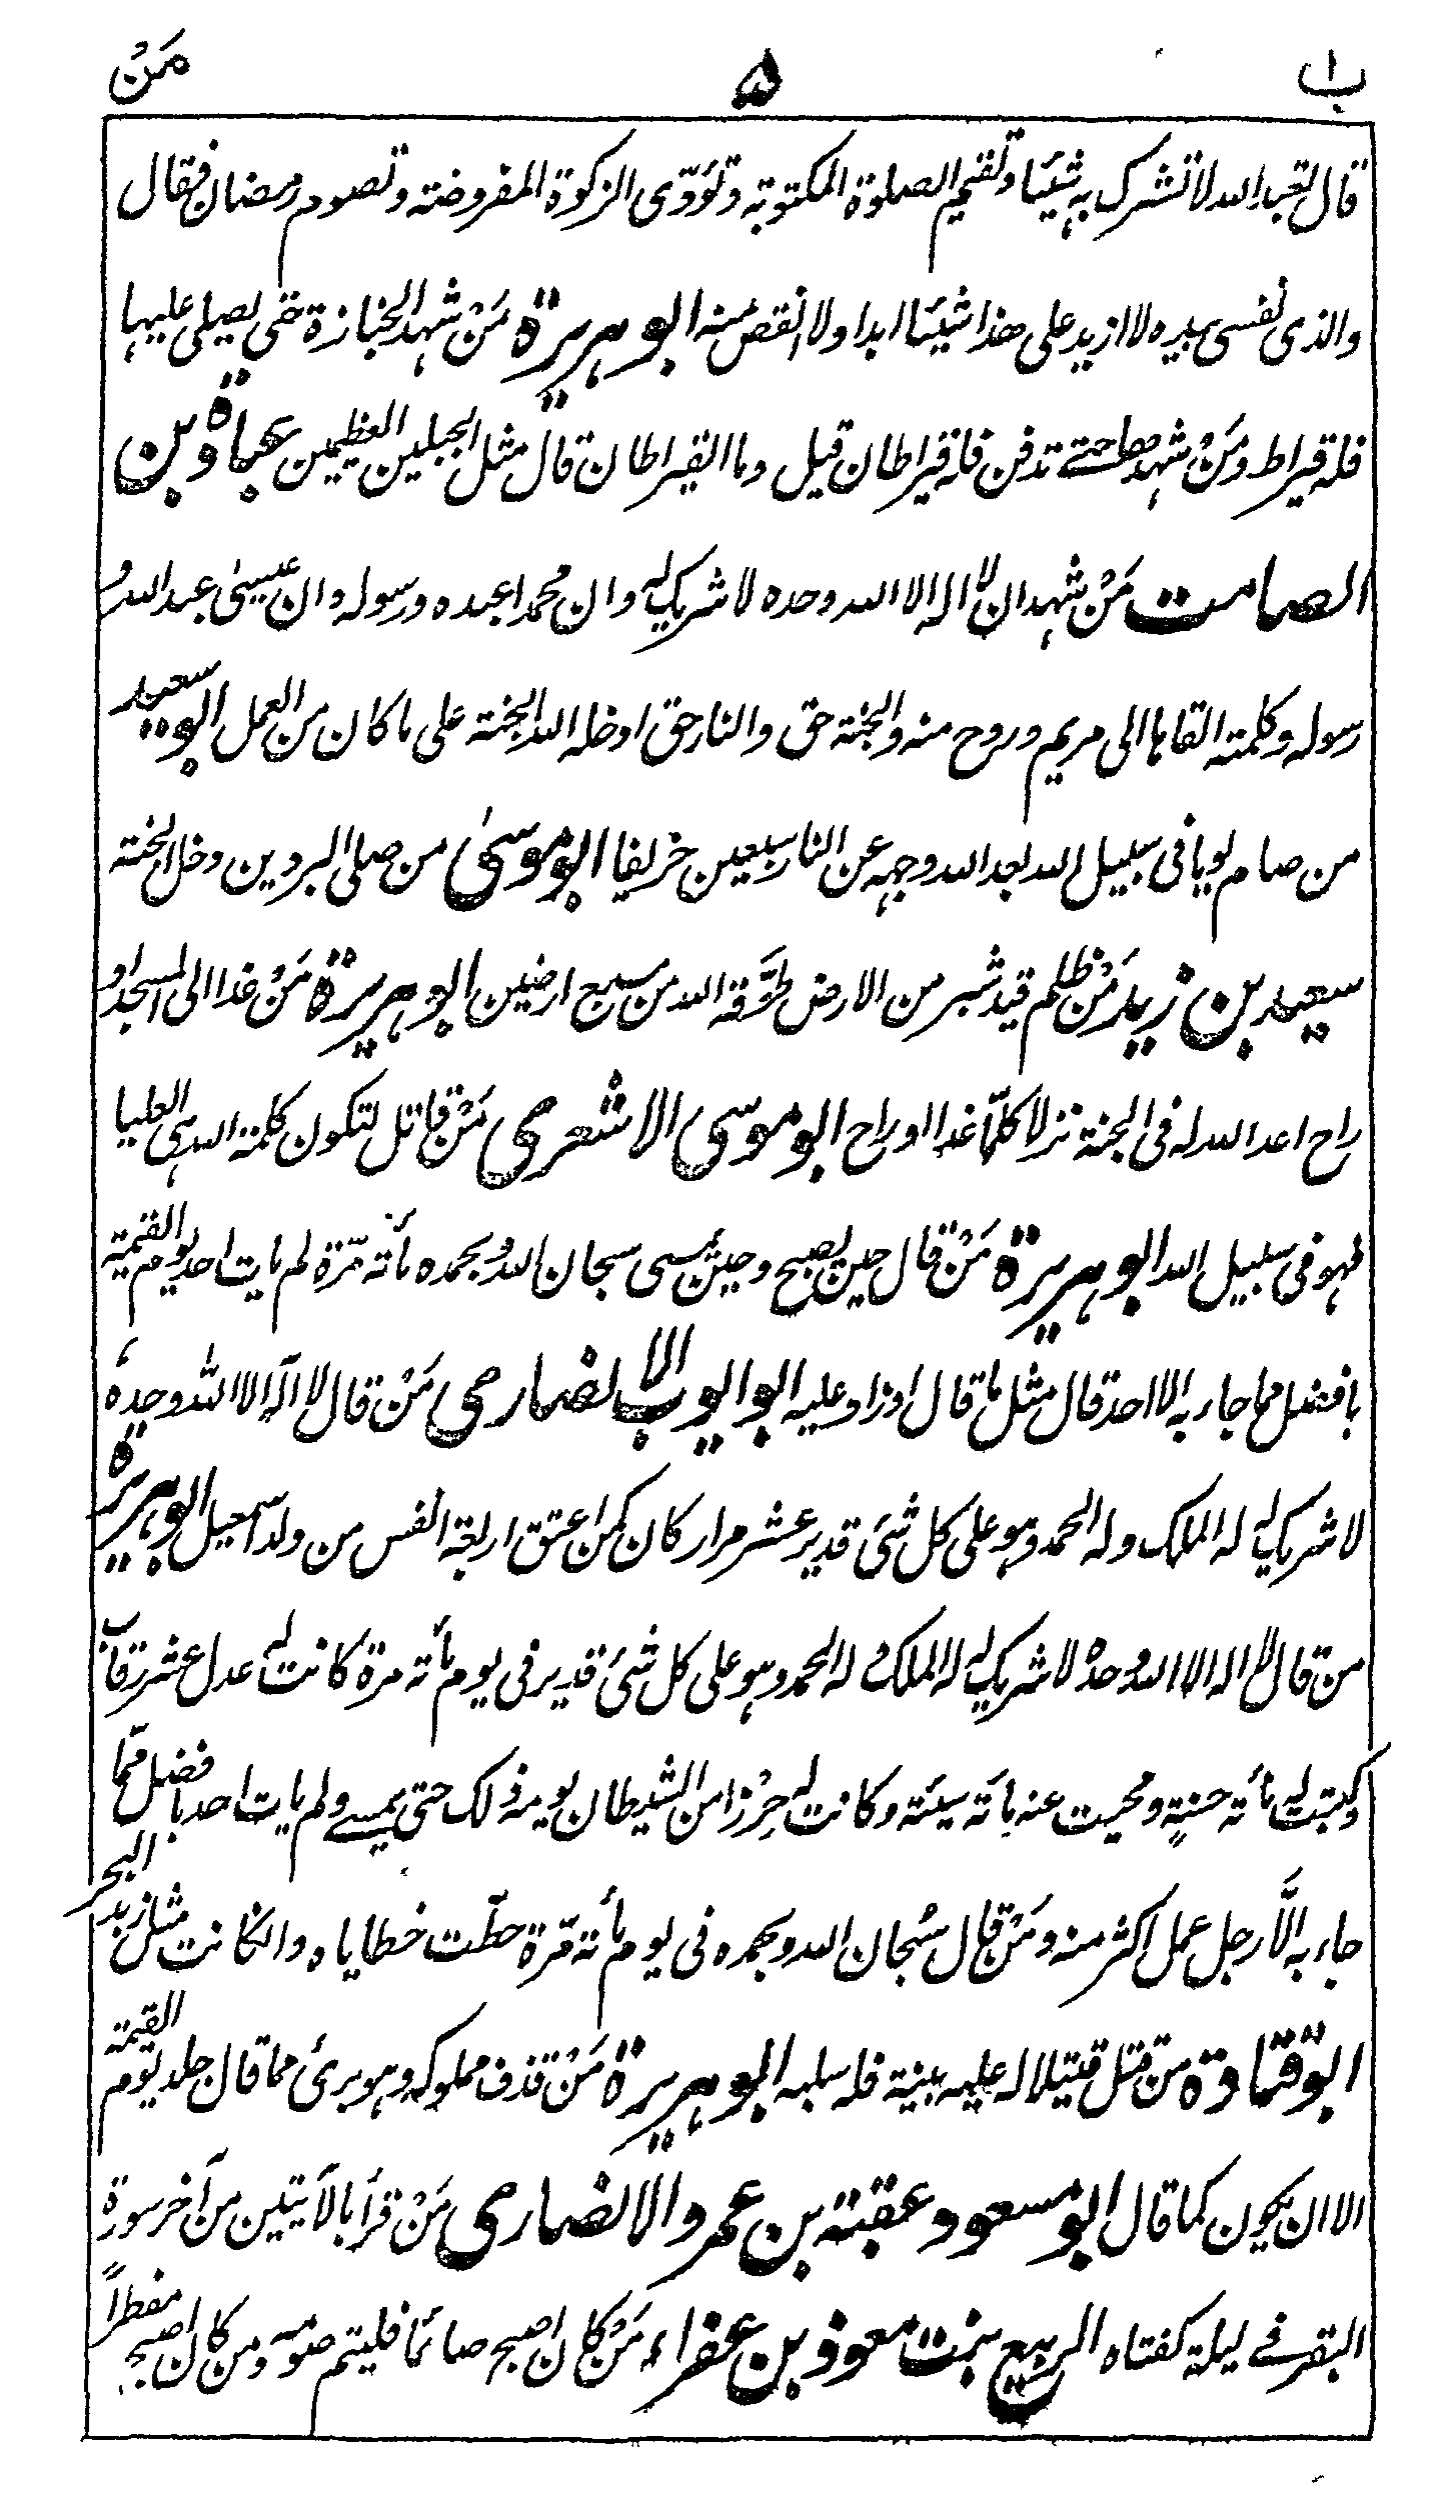 ب ا ۵ مَنْ
قال تعبد الله لا تشرك به شيئا وتقيم الصلوة المكتوبة وتؤدّى الزكوة المفروضة وتصوم رمضان فقال
والذى نفسى بيده لا ازيد على هذا شيئا ابدا ولا انقص منه ابو هريرة مَنْ شهد الجنازة حتى يصلى عليها
فله قيراط ومَنْ شهدها حتے تدفن فله قيراطان قيل وما القيراطان قال مثل الجبلين العظيمين عبادة بن
الصامت مَنْ شهد ان لا اله الا الله وحده لا شريك له وان محمدا عبده ورسوله وان عيسىٰ عبد الله و
رسوله وكلمته القاها الى مريم وروح منه والجنة حق والنار حق ادخله الله الجنة على ما كان من العمل ابو سعيد
من صام يوما فى سبيل الله بعد الله وجهه عن النار سبعين خريفا ابو موسىٰ من صلى البردين دخل الجنة
سعيد بن زيد مَنْ ظلم قيد شبر من الارض طوّقه الله من سبع ارضين ابو هريرة مَنْ غدا الى المسجد او
راح اعد الله له فى الجنة نزلا كلّما غدا او راح ابو موسى الاشعرى مَنْ قاتل لتكون كلمة الله هى العليا
فهو فى سبيل الله ابو هريرة مَنْ قال حين يصبح وحين يمسى سبحان الله وبحمده مأته مرّة لم يات احد يوم القيمة
بافضل مما جاء به الا احد قال مثل ما قال او زاد عليه ابو ايوب الانصارى مَنْ قال لا اله الا الله وحده
لا شريك له له الملك وله الحمد وهو على كل شئ قدير عشر مرار كان كمن اعتق اربعة انفس من ولد اسمعيل ابو هريرة
من قال لا اله الا الله وحده لا شريك له له الملك و له الحمد وهو على كل شئ قدير فى يوم مأته مرة كانت له عدل عشر رقاب
وكتبت له مأته حسنةٍ ومحيت عنه مأته سيئة وكانت له حِرْزا من الشيطان يومه ذلك حتى يمسے ولم يات احد بافضل ممّا
جاء به الّا رجل عمل اكثر منه ومَنْ قال سُبحان الله وبحمده فى يوم مأته مرّة حطّت خطاياه وان كانت مثل زبد البحر
ابو قتادة من قتل قتيلا له عليه بينة فله سلبه ابو هريرة مَنْ قذف مملوكه وهو برئ مما قال جلد يوم القيمة
الا ان يكون كما قال ابو مسعود عقبة بن عمرو الانصارى مَنْ قرأ بالآيتين من آخر سورة
البقر فے ليلة كفتاه الربيع بنت معوذ بن عفراء مَنْ كان اصبح صائما فليتم صومه ومن كان اصبح مفطراً